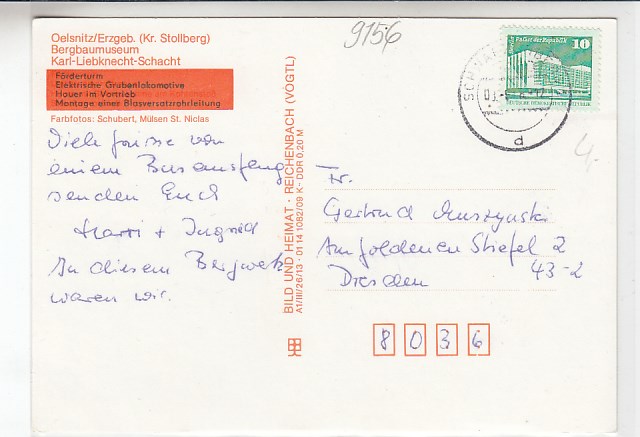 9156
Oelsnitz/Erzgeb. (Kr. Stollberg)
Bergbaumuseum
Karl-Liebknecht-Schacht
Förderturm
Elektrische Grubenlokomotive
Hauer im Vortrieb
Montage einer Blasversatzrohrleitung
Farbfotos: Schubert, Mülsen St. Niclas
Viele Grüsse von
einem Busausflug
senden Euch
Harri + Ingrid
In diesem Bergwerk
waren wir.
BILD UND HEIMAT · REICHENBACH (VOGTL)
A1/III/26/13 · 01 14 1082/09 K · DDR 0,20 M
Palast der Republik
10
DEUTSCHE DEMOKRATISCHE REPUBLIK
d
4,-
Fr.
Gertrud Muszynski
Am goldenen Stiefel 2
Dresden 43-2
8036